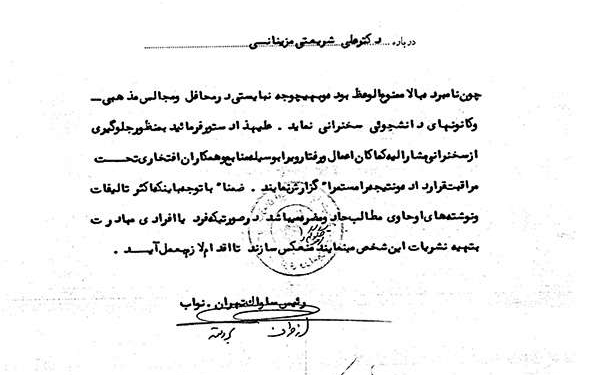 درباره دکترعلی شریعتی مزینانی
چون نامبرده بالا ممنوع الوعظ بوده و بهیچوجه نبایستی در محافل و مجالس مذهبی
و کانونهای دانشجوئی سخنرانی نماید . علیهذا دستور فرمائید بمنظور جلوگیری
از سخنرانی مشارالیه کماکان اعمال و رفتار ویرا بوسیله منابع و همکاران افتخاری تحت
مراقبت قرار داده و نتیجه را مستمرا" گزارش نمایند . ضمنا" با توجه باینکه اکثر تالیفات
و نوشته های او حاوی مطالب حاد و مضره میباشد در صورتیکه فرد یا افرادی مبادرت
بتهیه نشریات این شخص مینمایند منعکس سازند تا اقدام لازم بعمل آید .
رئیس ساواک تهران . نواب
از طرف